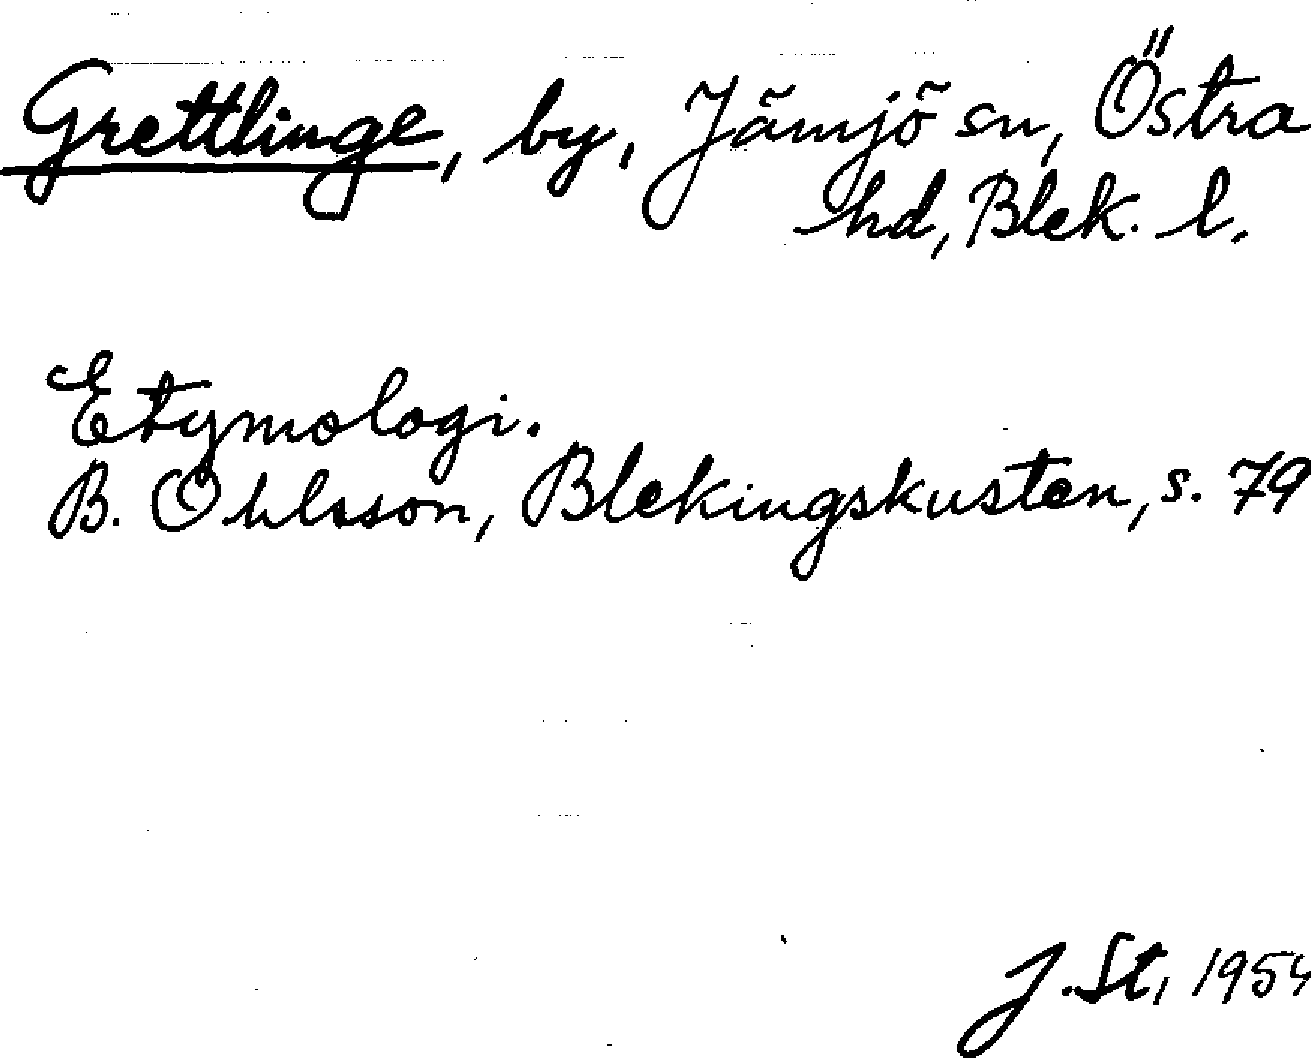 Grettlinge, by, Jämjö sn, Östra
hd, Blek. l.
Etymologi.
B. Ohlsson, Blekingskusten, s. 79
J. St, 1954